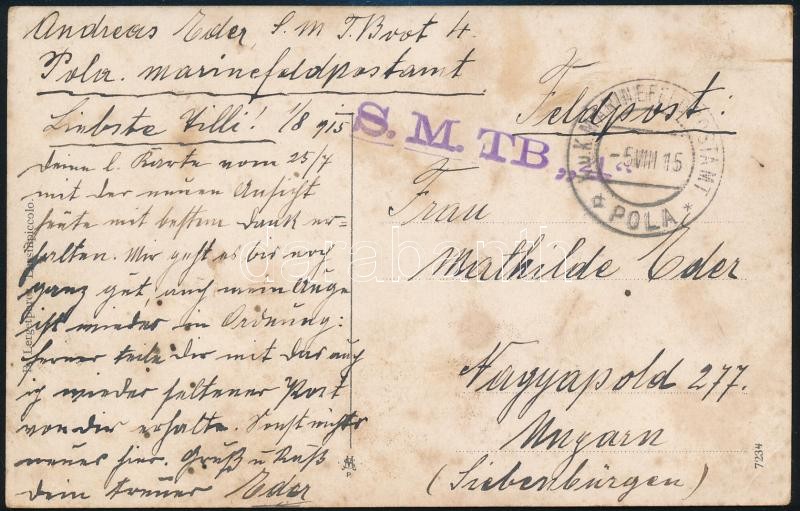 Andreas Eder, S. M T. Boot 4.
Pola. Marinefeldpostamt
Liebste Tilli! 1/8 915
Deine l. Karte vom 25/7
mit der neuen Ansicht
heute mit bestem Dank er=
halten. Mir geht es bis noch
ganz gut, auch mein Auge
ist wieder in Ordnung:
ferner teile Dir mit das auch
ich wieder seltener Post
von dir erhalte. Sonst nichts
neues hier. Gruß u Kuß
Dein treuer Eder
S. M. TB.
Feldpost:
K. u. K. MARINEFELDPOSTAMT
-5 VIII 15
* POLA *
Frau
Mathilde Eder
Nagyapold 277.
Ungarn
(Siebenbürgen)
Lussinpiccolo.
7234
darabanth